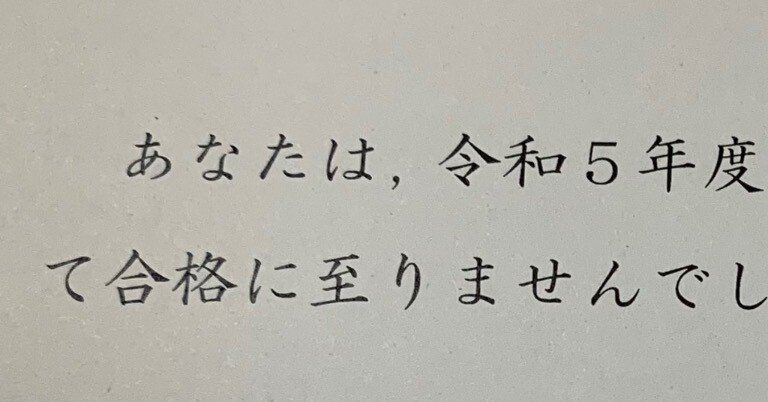 あなたは，令和５年度
て合格に至りませんでし